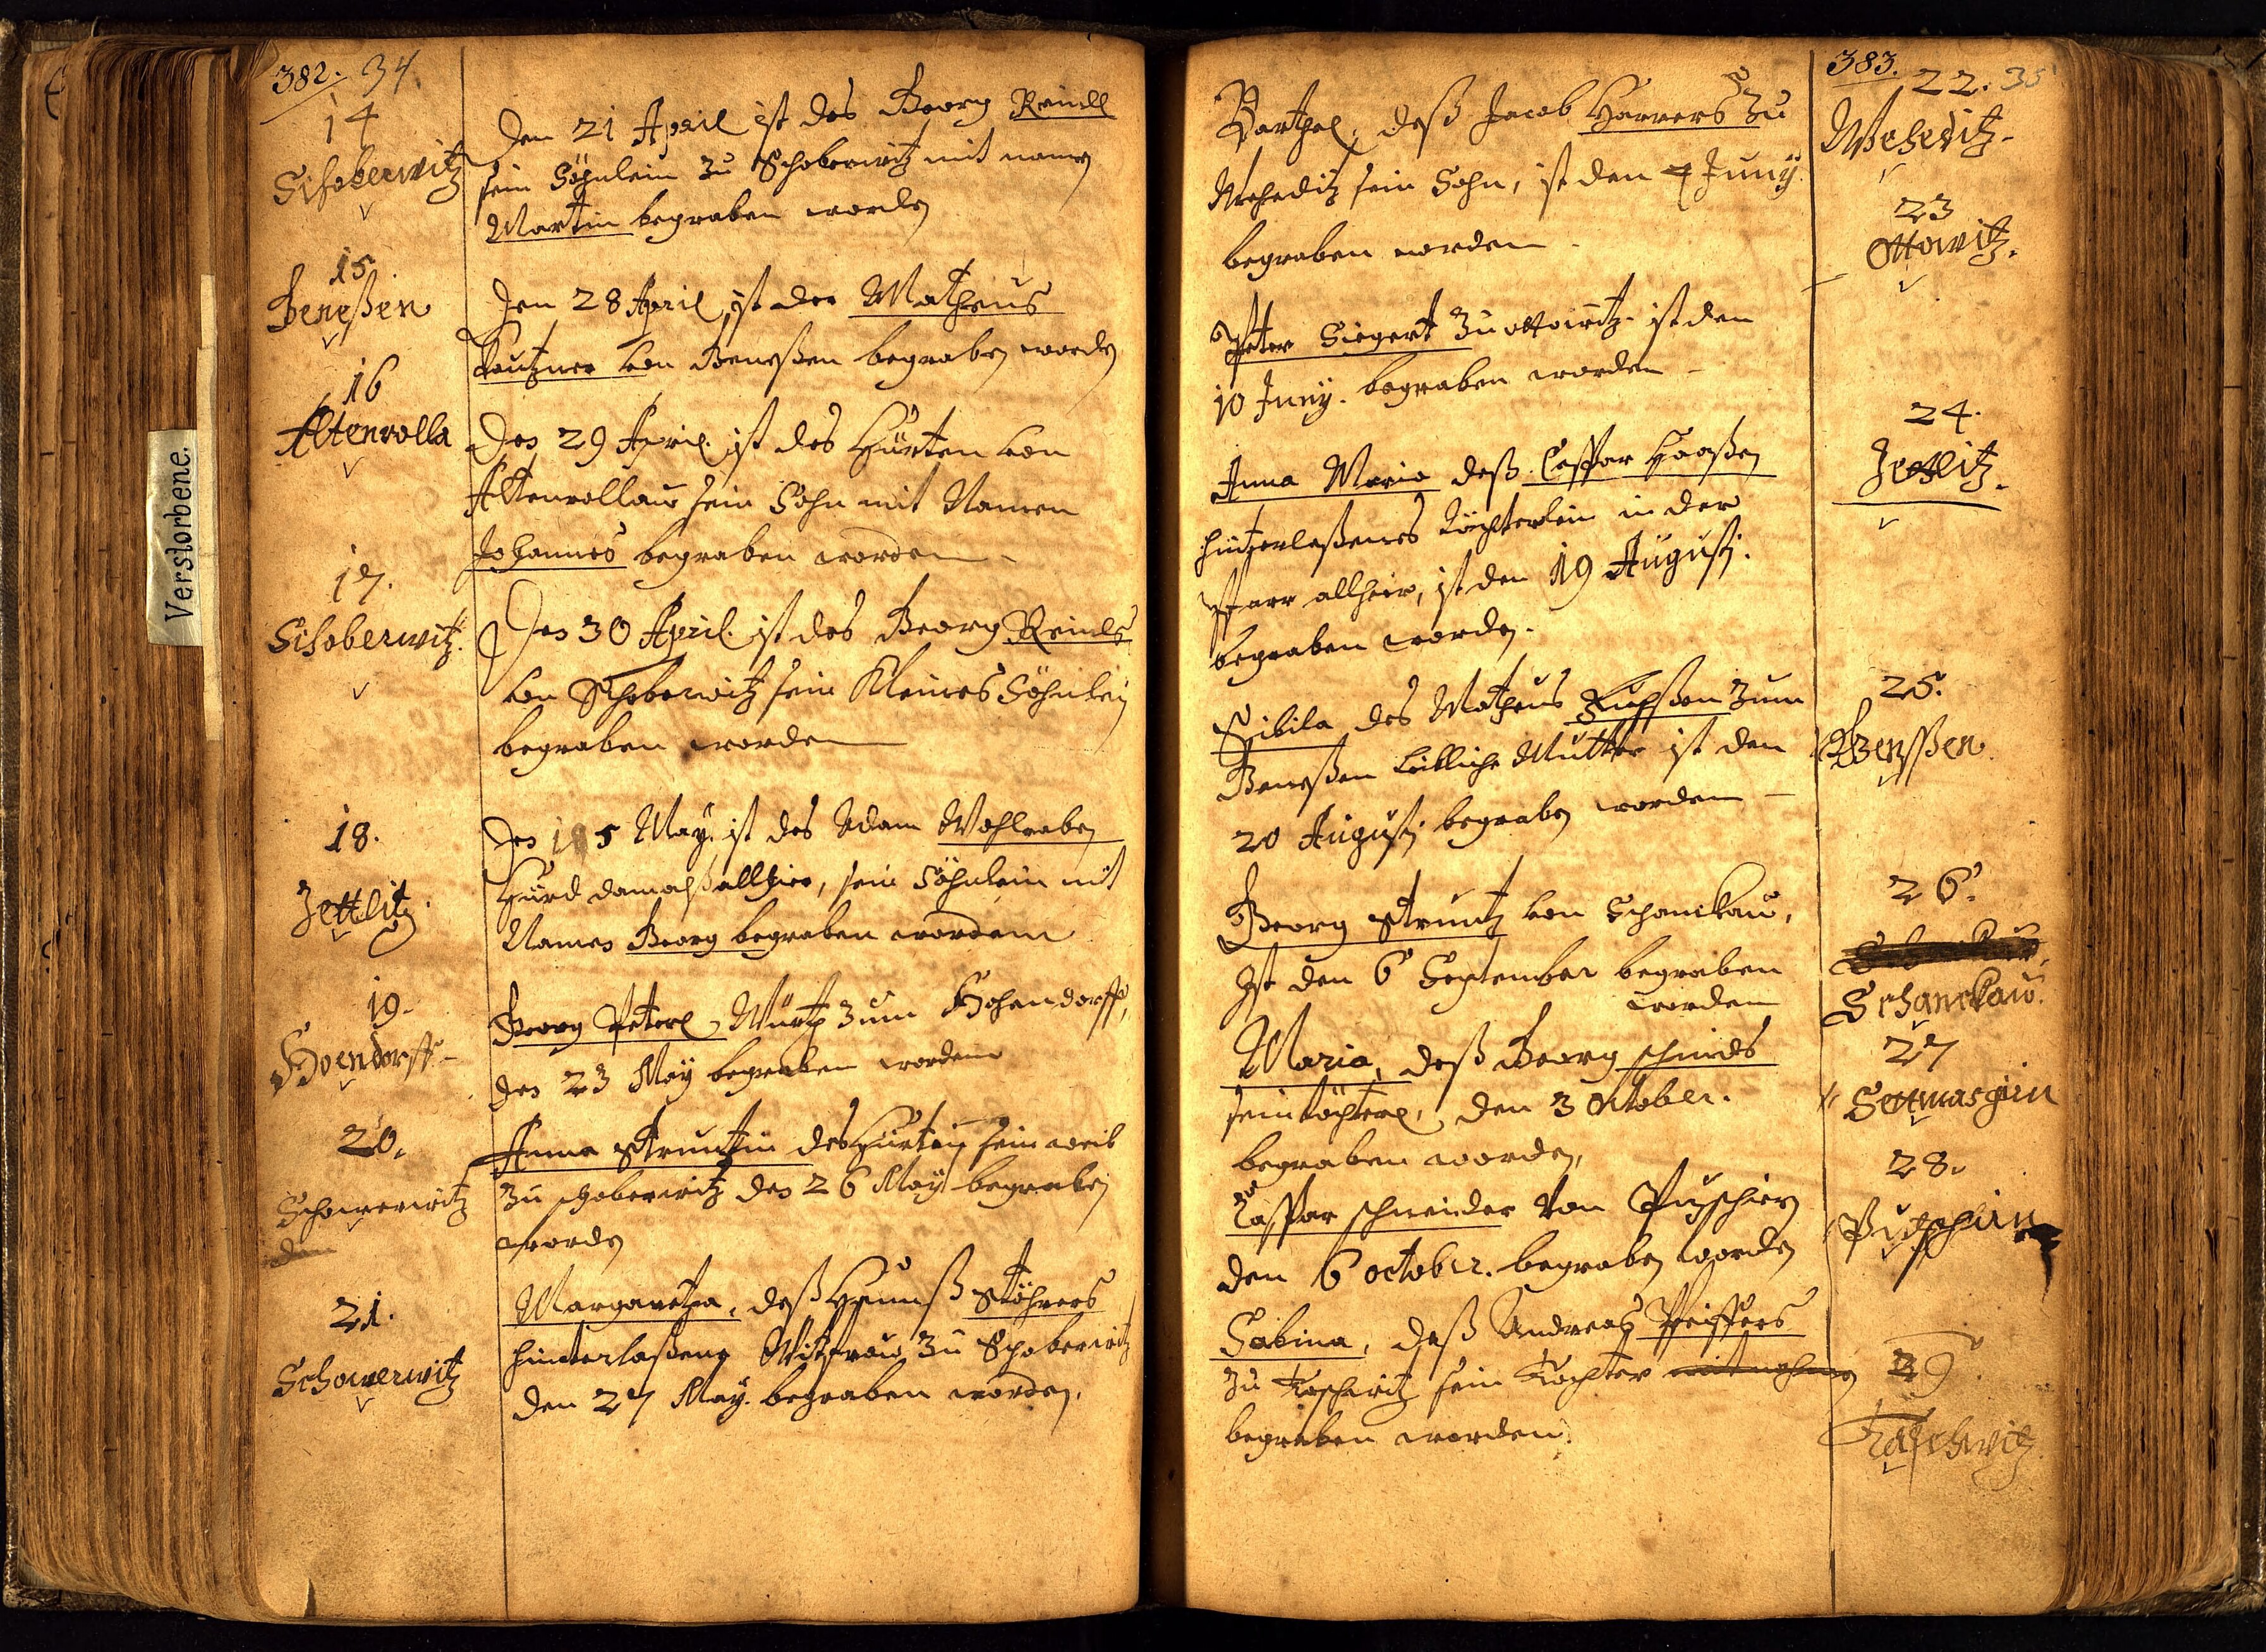 382. 34.
14
Schoberwitz
Den 21 April ist des Georg Reindl
sein Söhnlein zu Schoberwitz mit namen
Martin begraben worden
15.
Beneßen
Den 28 April ist der Matheus
von Beneßen begraben worden
16
Altenrolla
Den 29 April ist des Hürten von
Altenrollau sein Sohn mit Namen
Johannes begraben worden
17.
Schoberwitz.
Den 30 April ist des Georg Reindls
von Schoberwitz sein Kleines Söhnlein
begraben worden
18.
Zettlitz.
Den 5 May. ist des Adam Wohlraben
Hürd damalß allhier, sein Söhnlein mit
Namen Georg begraben worden
19.
Hoendorff
Georg Peterl, Würth zum Hohendorff,
den 23 May begraben worden
20.
Schowerwitz
Anna Struntzin des Hürten sein weib
zu schoberwitz den 26 May begraben
worden
21.
Schowerwitz
Margaretha, deß Hannß Stöhrers
hinterlaßene Witfrau zu Schoberwitz
den 27 May. begraben worden.
Verstorbene.
383.
22. 35
Weheditz.
Barthel, deß Jacob Harrers zu
Weheditz sein Sohn, ist den 4 Juny
begraben worden
23
Ottowitz.
Peter Siegert zu Ottowitz. ist den
10 Juny. begraben worden
24.
Zettlitz.
Anna Maria deß Caspar Haaßen
hinterlaßenes Töchterlein in der
Pfarr allhier, ist den 19 Augusti.
begraben worden.
25.
Beneßen
Sibila des Matheus Fuchßen zum
Beneßen leibliche Mutter ist den
20 Augusti begraben worden
26.
Schanckau.
Georg Struntz von Schanckau,
Ist den 6 September begraben
worden
27
Settmasgrün
Maria, deß Georg schmids
sein töchterl, den 3 October.
begraben worden,
28.
Putschirn
Caspar schneider Von Putschirn
den 6 october. begraben worden
29.
Taschwitz
Sabina, deß Andreaß Pfeiffers
zu Taschwitz sein Tochter
begraben worden.